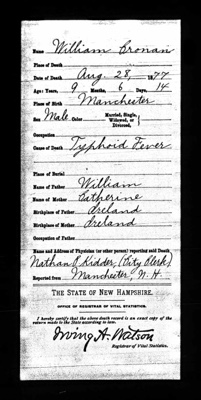 Name William Cronan
Place of Death
Date of Death Aug. 28, 1877
Age: Years, 9 Months, 6 Days, 14
Place of Birth Manchester
Sex Male Color Married, Single, Widowed, or Divorced,
Occupation
Cause of Death Typhoid Fever
Place of Burial
Name of Father William
Name of Mother Catherine
Birthplace of Father Ireland
Birthplace of Mother Ireland
Occupation of Father
Name and Address of Physician (or other person) reporting said Death
Nathan P. Kidder, (City Clerk)
Reported from Manchester, N. H.
THE STATE OF NEW HAMPSHIRE.
OFFICE OF REGISTRAR OF VITAL STATISTICS.
I hereby certify that the above death record is an exact copy of the
return made to the State according to law.
Irving A. Watson
Registrar of Vital Statistics.